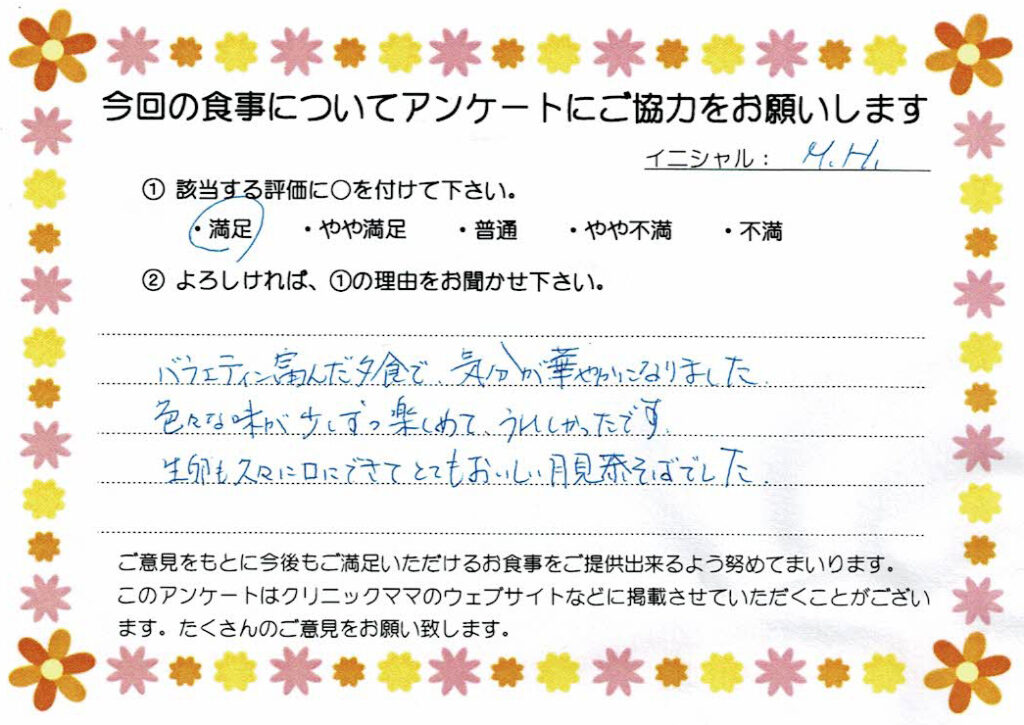 今回の食事についてアンケートにご協力をお願いします
イニシャル： M.H.
① 該当する評価に〇を付けて下さい。
・満足 ・やや満足 ・普通 ・やや不満 ・不満
② よろしければ、①の理由をお聞かせ下さい。
バラエティに富んだ夕食で、気分が華やかになりました。
色々な味が少しずつ楽しめて、うれしかったです。
生卵も久々に口にできてとてもおいしい月見茶そばでした。
ご意見をもとに今後もご満足いただけるお食事をご提供出来るよう努めてまいります。
このアンケートはクリニックママのウェブサイトなどに掲載させていただくことがござい
ます。たくさんのご意見をお願い致します。